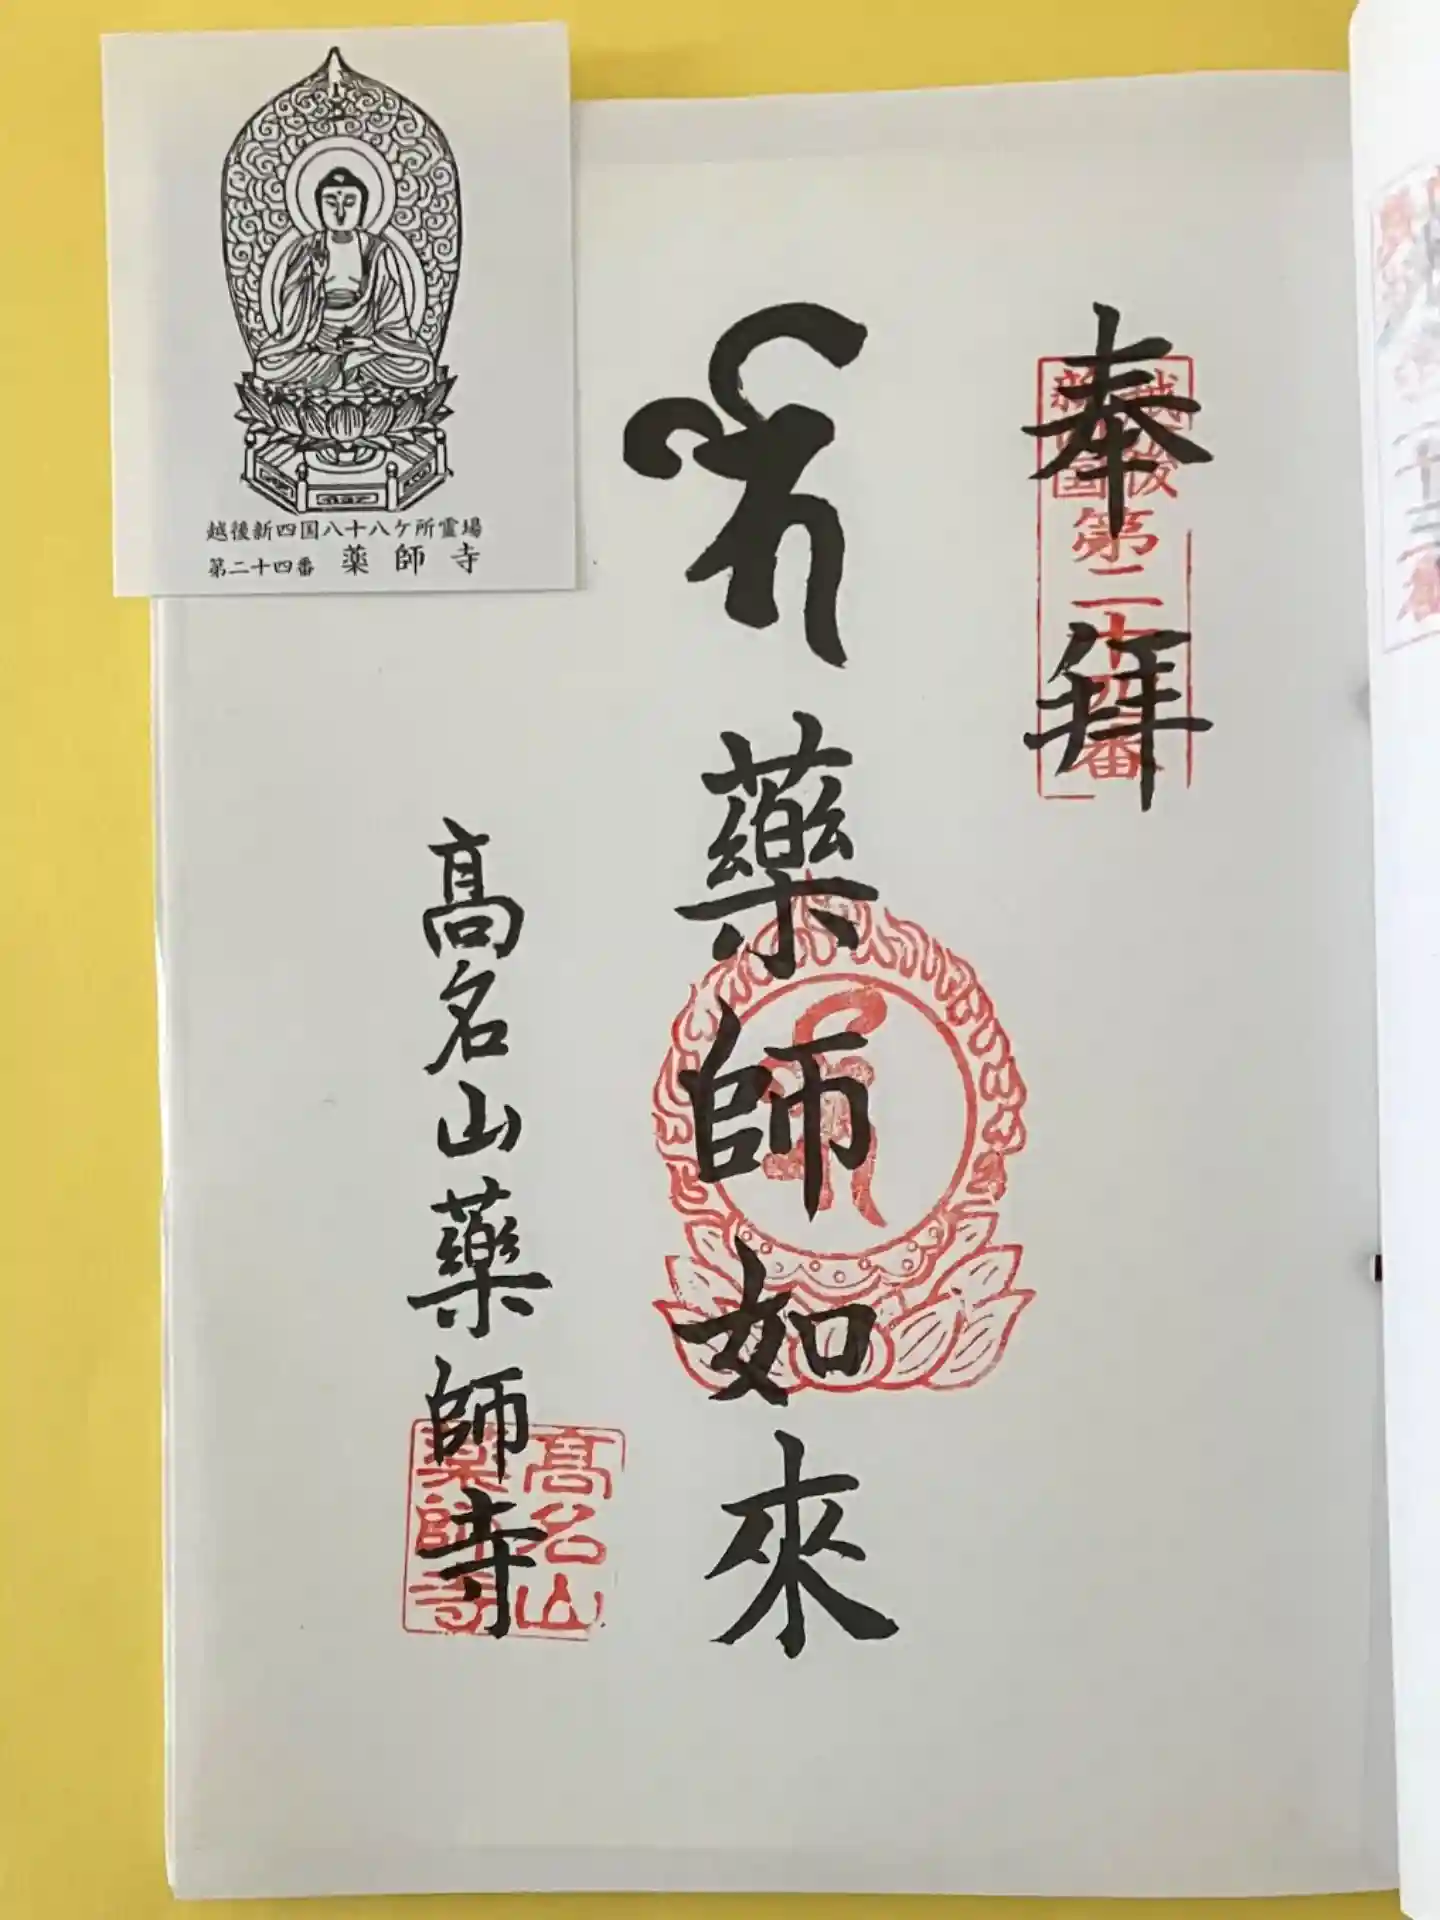 越後新四国八十八ケ所霊場
第二十四番 薬師寺
奉拜
越後
新四国
第二十四番
藥師如來
高名山藥師寺
高名山
薬師寺